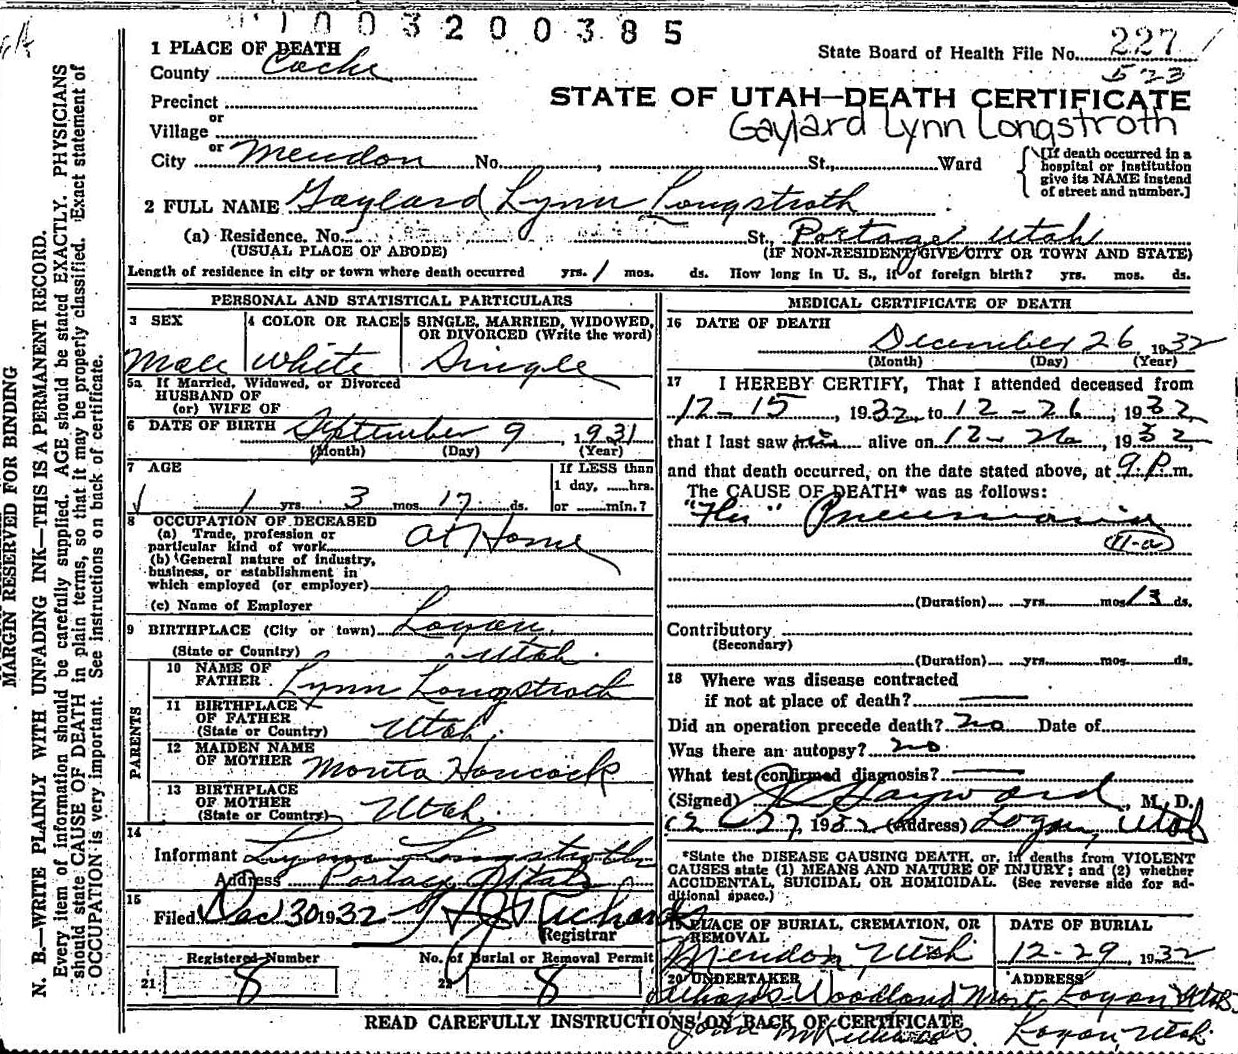 1003200385
1 PLACE OF DEATH
State Board of Health File No. 227
523
County Cache
STATE OF UTAH—DEATH CERTIFICATE
Gaylard Lynn Longstroth
Precinct
or
Village
or
City Mendon No. , St., Ward
[If death occurred in a
hospital or institution
give its NAME instead
of street and number.]
2 FULL NAME Gaylard Lynn Longstroth
(a) Residence. No. St. Portage Utah
(USUAL PLACE OF ABODE) (IF NON-RESIDENT GIVE CITY OR TOWN AND STATE)
Length of residence in city or town where death occurred yrs. 1 mos. ds. How long in U. S., if of foreign birth? yrs. mos. ds.
PERSONAL AND STATISTICAL PARTICULARS
3 SEX 4 COLOR OR RACE 5 SINGLE, MARRIED, WIDOWED,
OR DIVORCED (Write the word)
Male White Single
5a If Married, Widowed, or Divorced
HUSBAND OF
(or) WIFE OF
6 DATE OF BIRTH September 9, 1931
(Month) (Day) (Year)
7 AGE If LESS than
1 day, ......hrs.
1 yrs. 3 mos. 17 ds. or ......min.?
8 OCCUPATION OF DECEASED
(a) Trade, profession or
particular kind of work At Home
(b) General nature of industry,
business, or establishment in
which employed (or employer)
(c) Name of Employer
9 BIRTHPLACE (City or town) Logan,
(State or Country) Utah.
PARENTS
10 NAME OF
FATHER Lynn Longstroth
11 BIRTHPLACE
OF FATHER
(State or Country) Utah.
12 MAIDEN NAME
OF MOTHER Morita Hancock
13 BIRTHPLACE
OF MOTHER
(State or Country) Utah.
14
Informant Lynn Longstroth
Address Portage Utah
15
Filed Dec 30 1932 Richards
Registrar
Registered Number No. of Burial or Removal Permit
21 8 22 8
MEDICAL CERTIFICATE OF DEATH
16 DATE OF DEATH
December 26 1932
(Month) (Day) (Year)
17 I HEREBY CERTIFY, That I attended deceased from
12-15, 1932, to 12-26, 1932
that I last saw him alive on 12-26, 1932
and that death occurred, on the date stated above, at 9 P.m.
The CAUSE OF DEATH* was as follows:
"Flu" Pneumonia
11-a
(Duration) yrs. mos. 13 ds.
Contributory
(Secondary)
(Duration) yrs. mos. ds.
18 Where was disease contracted
if not at place of death?
Did an operation precede death? no Date of
Was there an autopsy? no
What test confirmed diagnosis?
(Signed) Hayward, M. D.
12-27, 1932 (Address) Logan, Utah
*State the DISEASE CAUSING DEATH, or, in deaths from VIOLENT
CAUSES state (1) MEANS AND NATURE OF INJURY; and (2) whether
ACCIDENTAL, SUICIDAL OR HOMICIDAL. (See reverse side for ad-
ditional space.)
19 PLACE OF BURIAL, CREMATION, OR
REMOVAL
Mendon, Utah
DATE OF BURIAL
12-29, 1932
20 UNDERTAKER ADDRESS
Woodland Mort. Logan Utah
Logan, Utah
READ CAREFULLY INSTRUCTIONS ON BACK OF CERTIFICATE
MARGIN RESERVED FOR BINDING
N. B.—WRITE PLAINLY WITH UNFADING INK—THIS IS A PERMANENT RECORD.
Every item of information should be carefully supplied. AGE should be stated EXACTLY. PHYSICIANS
should state CAUSE OF DEATH in plain terms, so that it may be properly classified. Exact statement of
OCCUPATION is very important. See instructions on back of certificate.